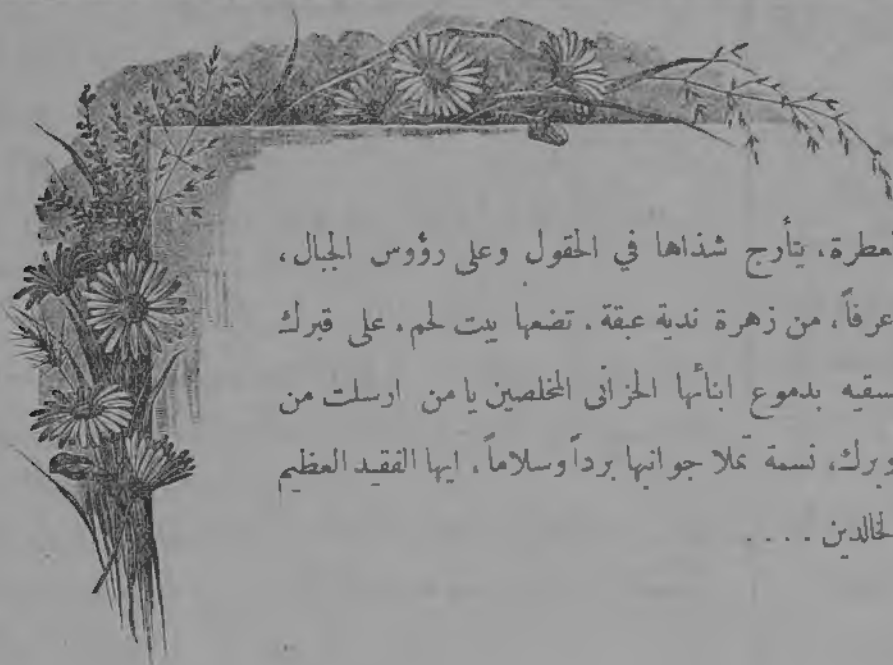 لعطرة، يتأرج شذاها في الحقول وعلى رؤوس الجبال،
عرفاً، من زهرة ندية عبقة، تضعها بيت لحم، على قبرك
سقيه بدموع ابنائها الحزانى المخلصين يا من ارسلت من
وبرك، نسمة تملا جوانبها برداً وسلاماً، ايها الفقيد العظيم
لخالدين ....